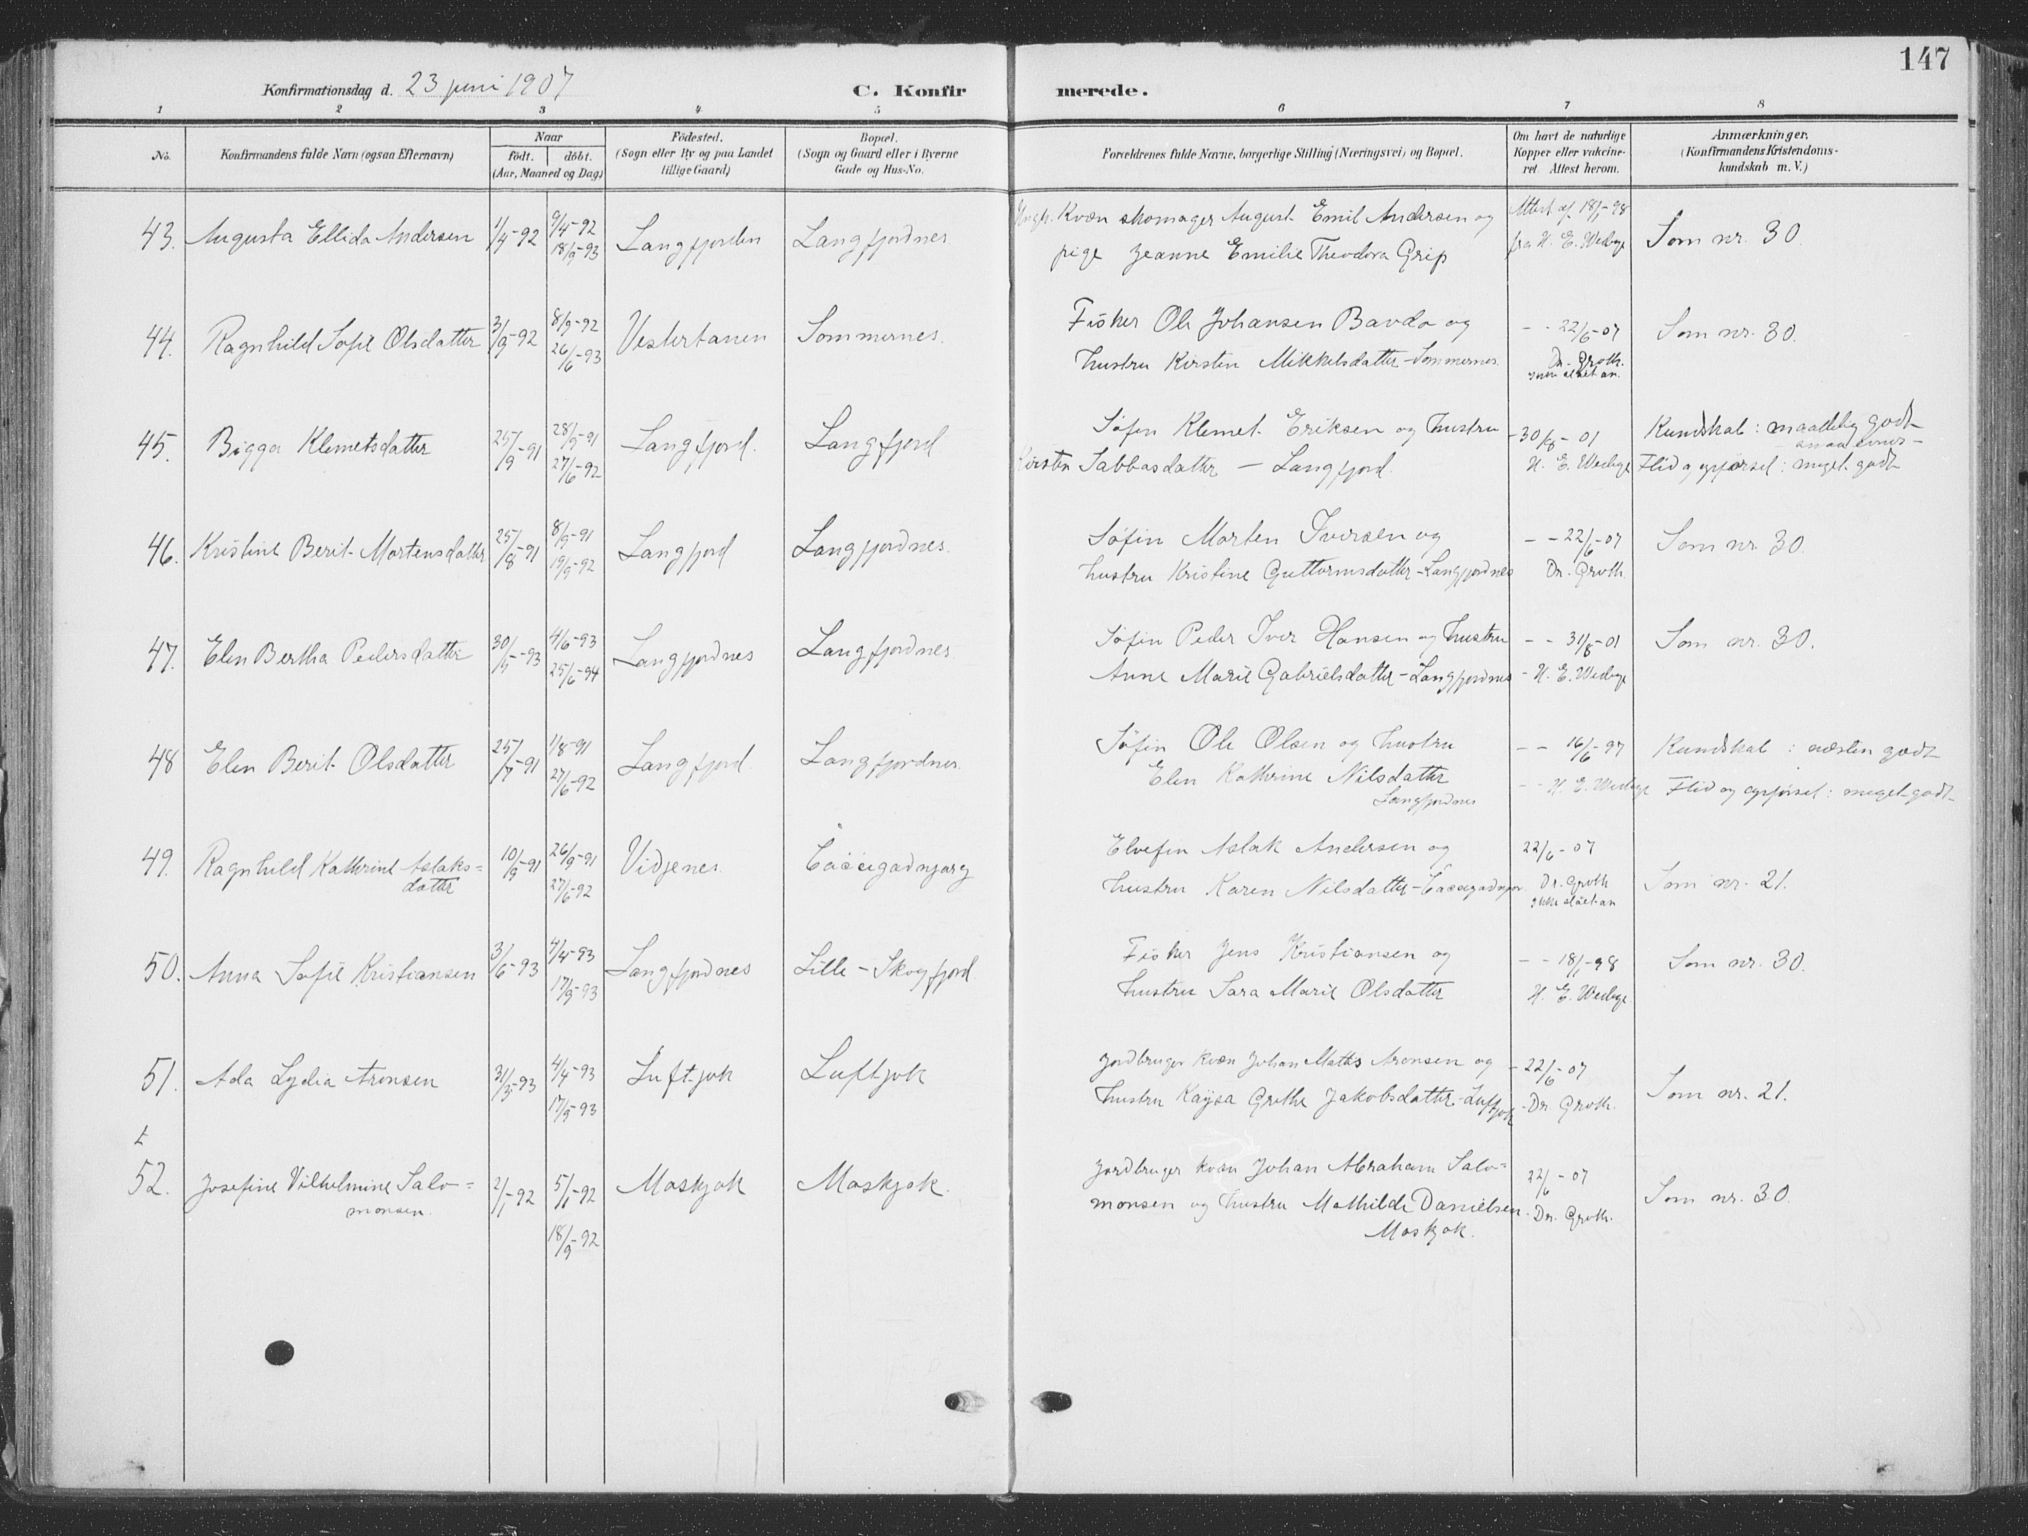 147
Konfirmationsdag d. 23 juni 1907 C. Konfirmerede.
1 2 3 4 5 6 7 8
No. Konfirmandens fulde Navn (ogsaa Efternavn) Naar födt. döbt. (Aar, Maaned og Dag) Födested. (Sogn eller By og paa Landet tillige Gaard) Bopæl. (Sogn og Gaard eller i Byerne Gade og Hus-No. Forældrenes fulde Navne, borgerlige Stilling (Næringsvei) og Bopæl. Om havt de naturlige Kopper eller vakcineret. Attest herom. Anmærkninger. (Konfirmandens Kristendomskundskab m. V.)
43. Augusta Ellida Andersen 1/4-92 9/4-92 Langfjorden Langfjordnes Ungk. Kvæn skomager August Emil Andersen og Attest af 18/1-98 Som nr. 30.
18/9-93 pige Jeanne Emilie Theodora Grip fra H. E. Wedege
44. Ragnhild Sofie Olsdatter 3/9-92 8/9-92 Vestertanen Sommernes. Fisker Ole Johansen Bavda og - - 22/6-07 Som nr. 30.
26/6-93 hustru Kirsten Mikkelsdatter - Sommernes. Dr. Groth.
ikke slaet an.
45. Bigga Klemetsdatter 25/9-91 28/9-91 Langfjord. Langfjord Søfin Klemet Eriksen og hustru - 30/8-01 Kundskab: maadelig godt
smaa evner-
27/6-92 Kirsten Sabbasdatter - Langfjord. H. E. Wedege Flid og opførsel: meget godt
46. Kristine Berit Mortensdatter 25/8-91 8/9-91 Langfjord Langfjordnes. Søfin Morten Iversen og - - 22/6-07 Som nr. 30.
19/9-92 hustru Kristine Guttormsdatter - Langfjordnes Dr. Groth.
47. Elen Bertha Pedersdatter 30/5-93 4/6-93 Langfjordnes Langfjordnes. Søfin Peder Iver Hansen og hustru - - 31/8-01 Som nr. 30.
25/6-94 Anne Marie Gabrielsdatter - Langfjordnes - H. E. Wedege
48 Elen Berit Olsdatter 25/7-91 1/8-91 Langfjord. Langfjordnes. Søfin Ole Olsen og hustru - - 16/6-97 Kundskab: næsten godt
27/6-92 Elen Kathrine Nilsdatter - - H. E. Wedege Flid og opførsel: meget godt
Langfjordnes
49. Ragnhild Kathrine Aslaks= 10/9-91 26/9-91 Vidjenes. Caccegadnjarg Elvefin Aslak Andersen og 22/6-07
datter 27/6-92 hustru Karen Nilsdatter - Caccegadnjar. Dr. Groth Som nr. 21.
ikke slaet an
50. Anna Sofie Kristiansen 3/6-93 4/4-93 Langfjordnes Lille-Skogfjord. Fisker Jens Kristiansen og - - 18/1-98 Som nr. 30.
17/9-93 hustru Sara Marie Olsdatter H. E. Wedege
51. Ada Lydia Aronsen 31/3-93 4/4-93 Luftjok Luftjok Jordbruger kvæn Johan Mathis Aronsen og - 22/6-07 Som nr. 21.
17/9-93 hustru Kaysa Grethe Jakobsdatter - Luftjok - Dr. Groth.
t
52. Josefine Vilhelmine Salo= 2/1-92 5/1-92 Maskjok Maskjok. Jordbruger kvæn Johan Abraham Salo= 22/6-07 Som nr. 30.
monsen. 18/9-92 monsen og hustru Mathilde Danielsen. Dr. Groth.
Maskjok.